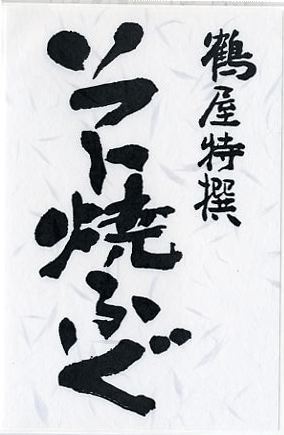 鶴屋特撰
ソフト焼ふぐ